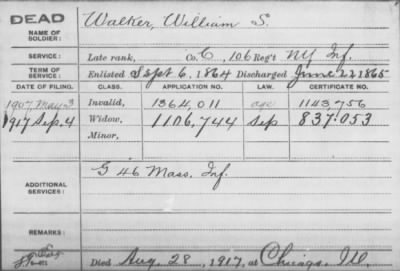 DEAD
NAME OF SOLDIER: Walker, William S.
SERVICE: Late rank, Co. C, 106 Reg't NY Inf.
TERM OF SERVICE: Enlisted Sept 6, 1864 Discharged June 22 1865
DATE OF FILING. CLASS. APPLICATION NO. LAW. CERTIFICATE NO.
1907 May 3 Invalid, 1364,011 age 1143,756
1917 Sep. 4 Widow, 1106,744 Sep 837,053
Minor,
ADDITIONAL SERVICES: G 46 Mass. Inf.
REMARKS:
Died Aug. 28, 1917, at Chicago, Ill.